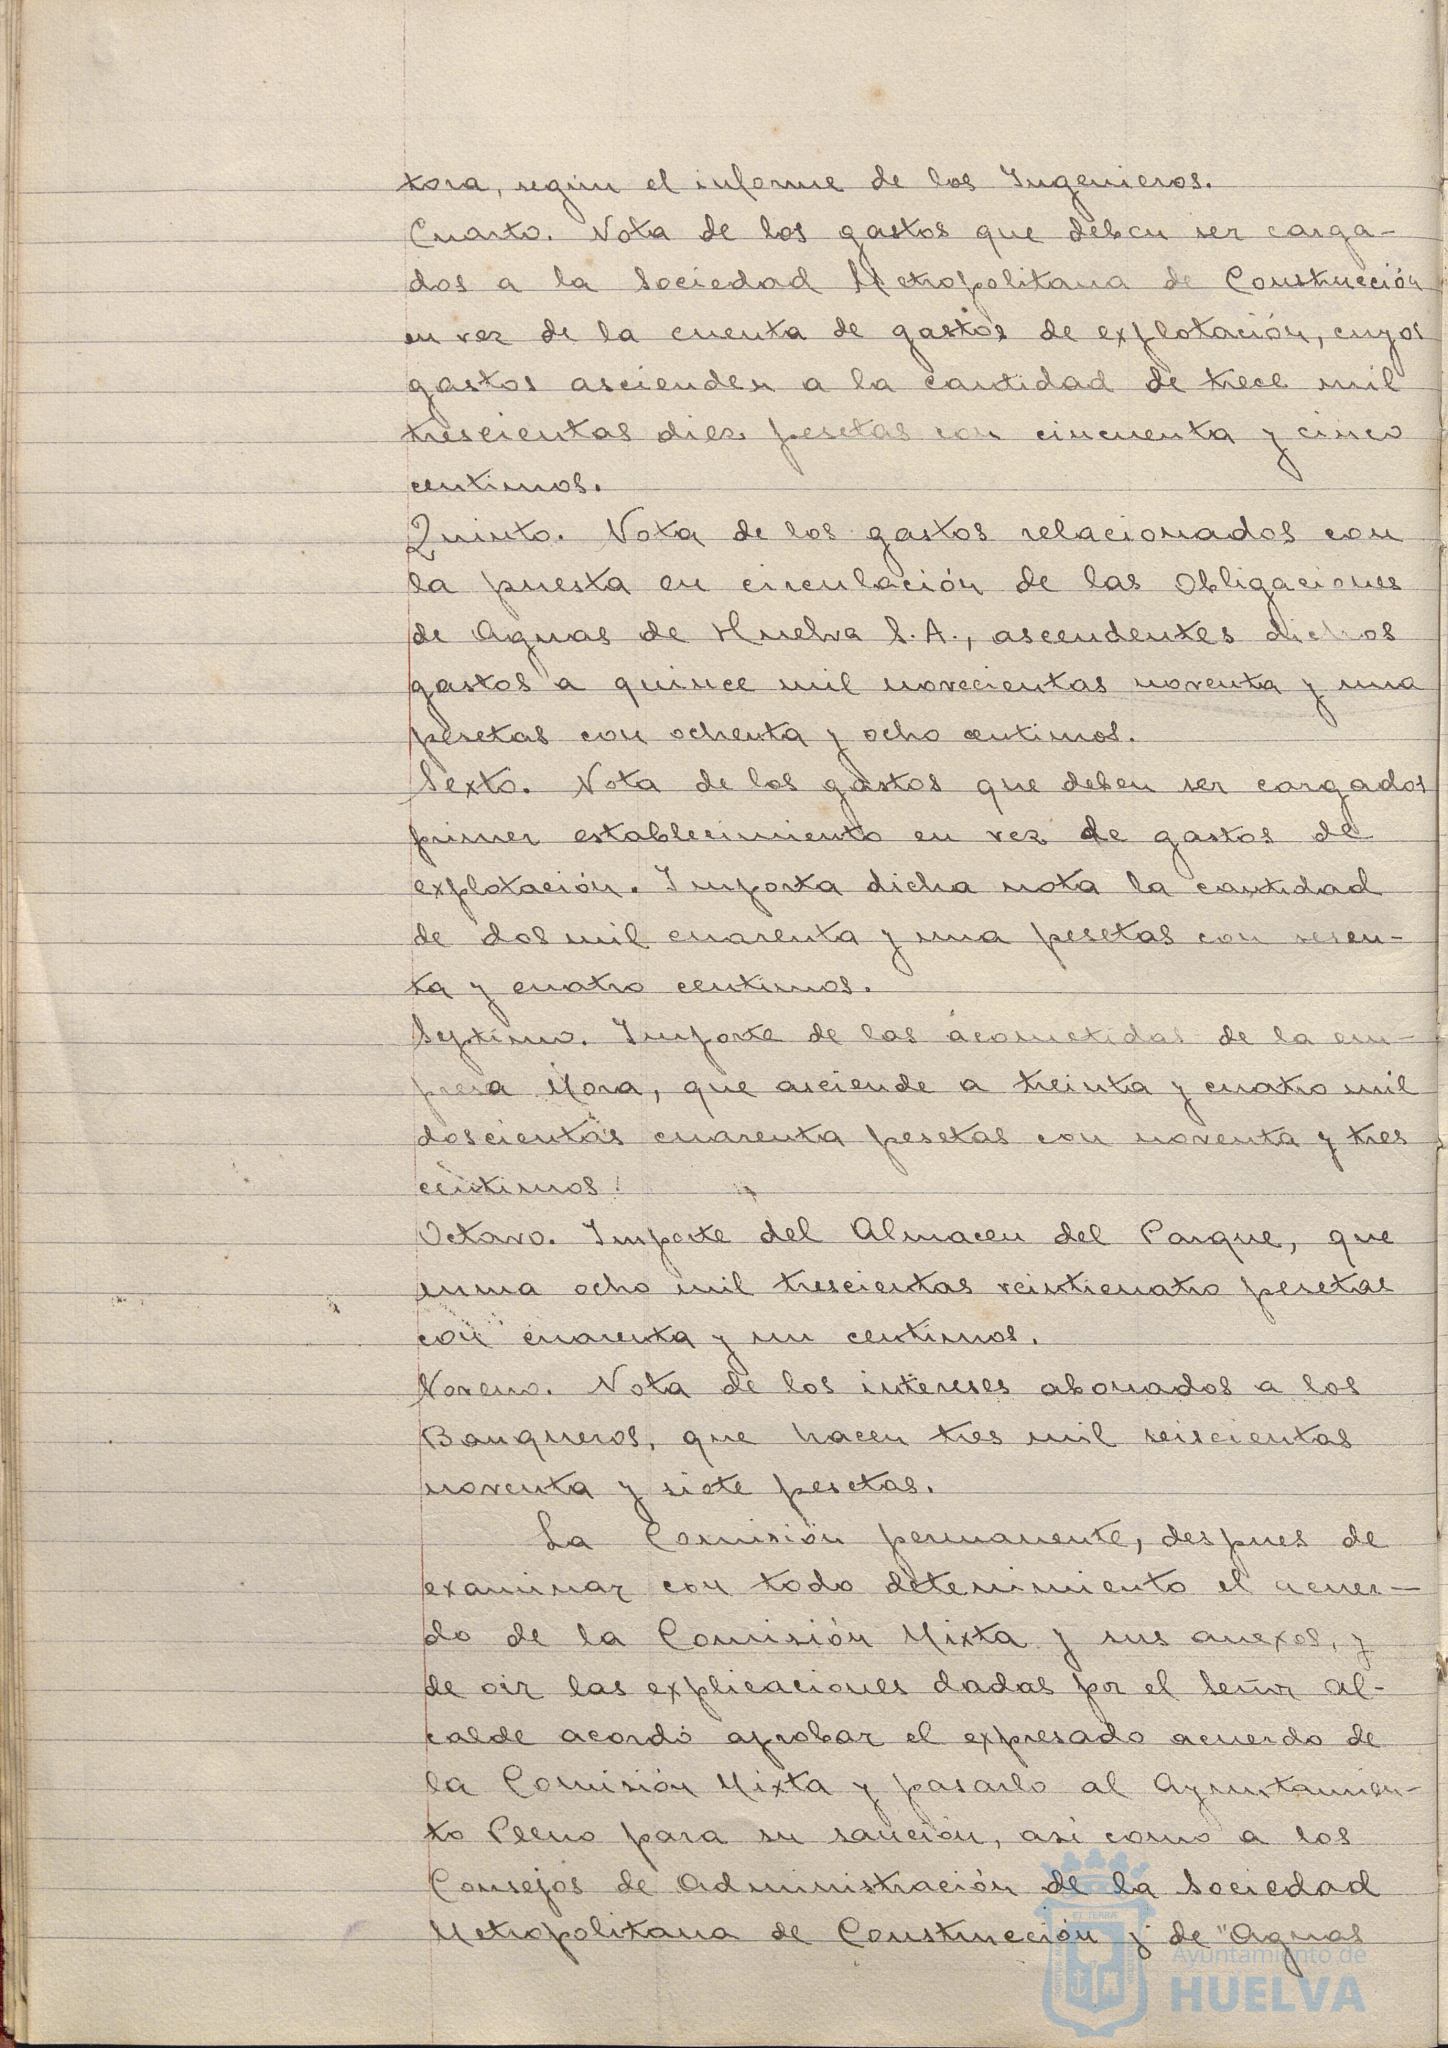 tora, según el informe de los Ingenieros.
Cuarto. Nota de los gastos que deben ser carga-
dos a la Sociedad Metropolitana de Construcción
en vez de la cuenta de gastos de explotación, cuyos
gastos ascienden a la cantidad de trece mil
trescientas diez pesetas con cincuenta y cinco
centimos.
Quinto. Nota de los gastos relacionados con
la puesta en circulación de las Obligaciones
de Aguas de Huelva S.A., ascendentes dichos
gastos a quince mil novecientas noventa y una
pesetas con ochenta y ocho centimos.
Sexto. Nota de los gastos que deben ser cargados
primer establecimiento en vez de gastos de
explotación. Importa dicha nota la cantidad
de dos mil cuarenta y una pesetas con sesen-
ta y cuatro centimos.
Septimo. Importe de las acometidas de la em-
presa Mora, que asciende a treinta y cuatro mil
doscientas cuarenta pesetas con noventa y tres
centimos.
Octavo. Importe del Almacen del Parque, que
suma ocho mil trescientas veinticuatro pesetas
con cuarenta y un centimos.
Noveno. Nota de los intereses abonados a los
Banqueros, que hacen tres mil seiscientas
noventa y siete pesetas.
La Comisión permanente, despues de
examinar con todo detenimiento el acuer-
do de la Comisión Mixta y sus anexos, y
de oir las explicaciones dadas por el Señor Al-
calde acordó aprobar el expresado acuerdo de
la Comisión Mixta y pasarlo al Ayuntamien-
to Pleno para su sanción, así como a los
Consejos de Administración de la Sociedad
Metropolitana de Construcción y de "Aguas
Ayuntamiento de
HUELVA